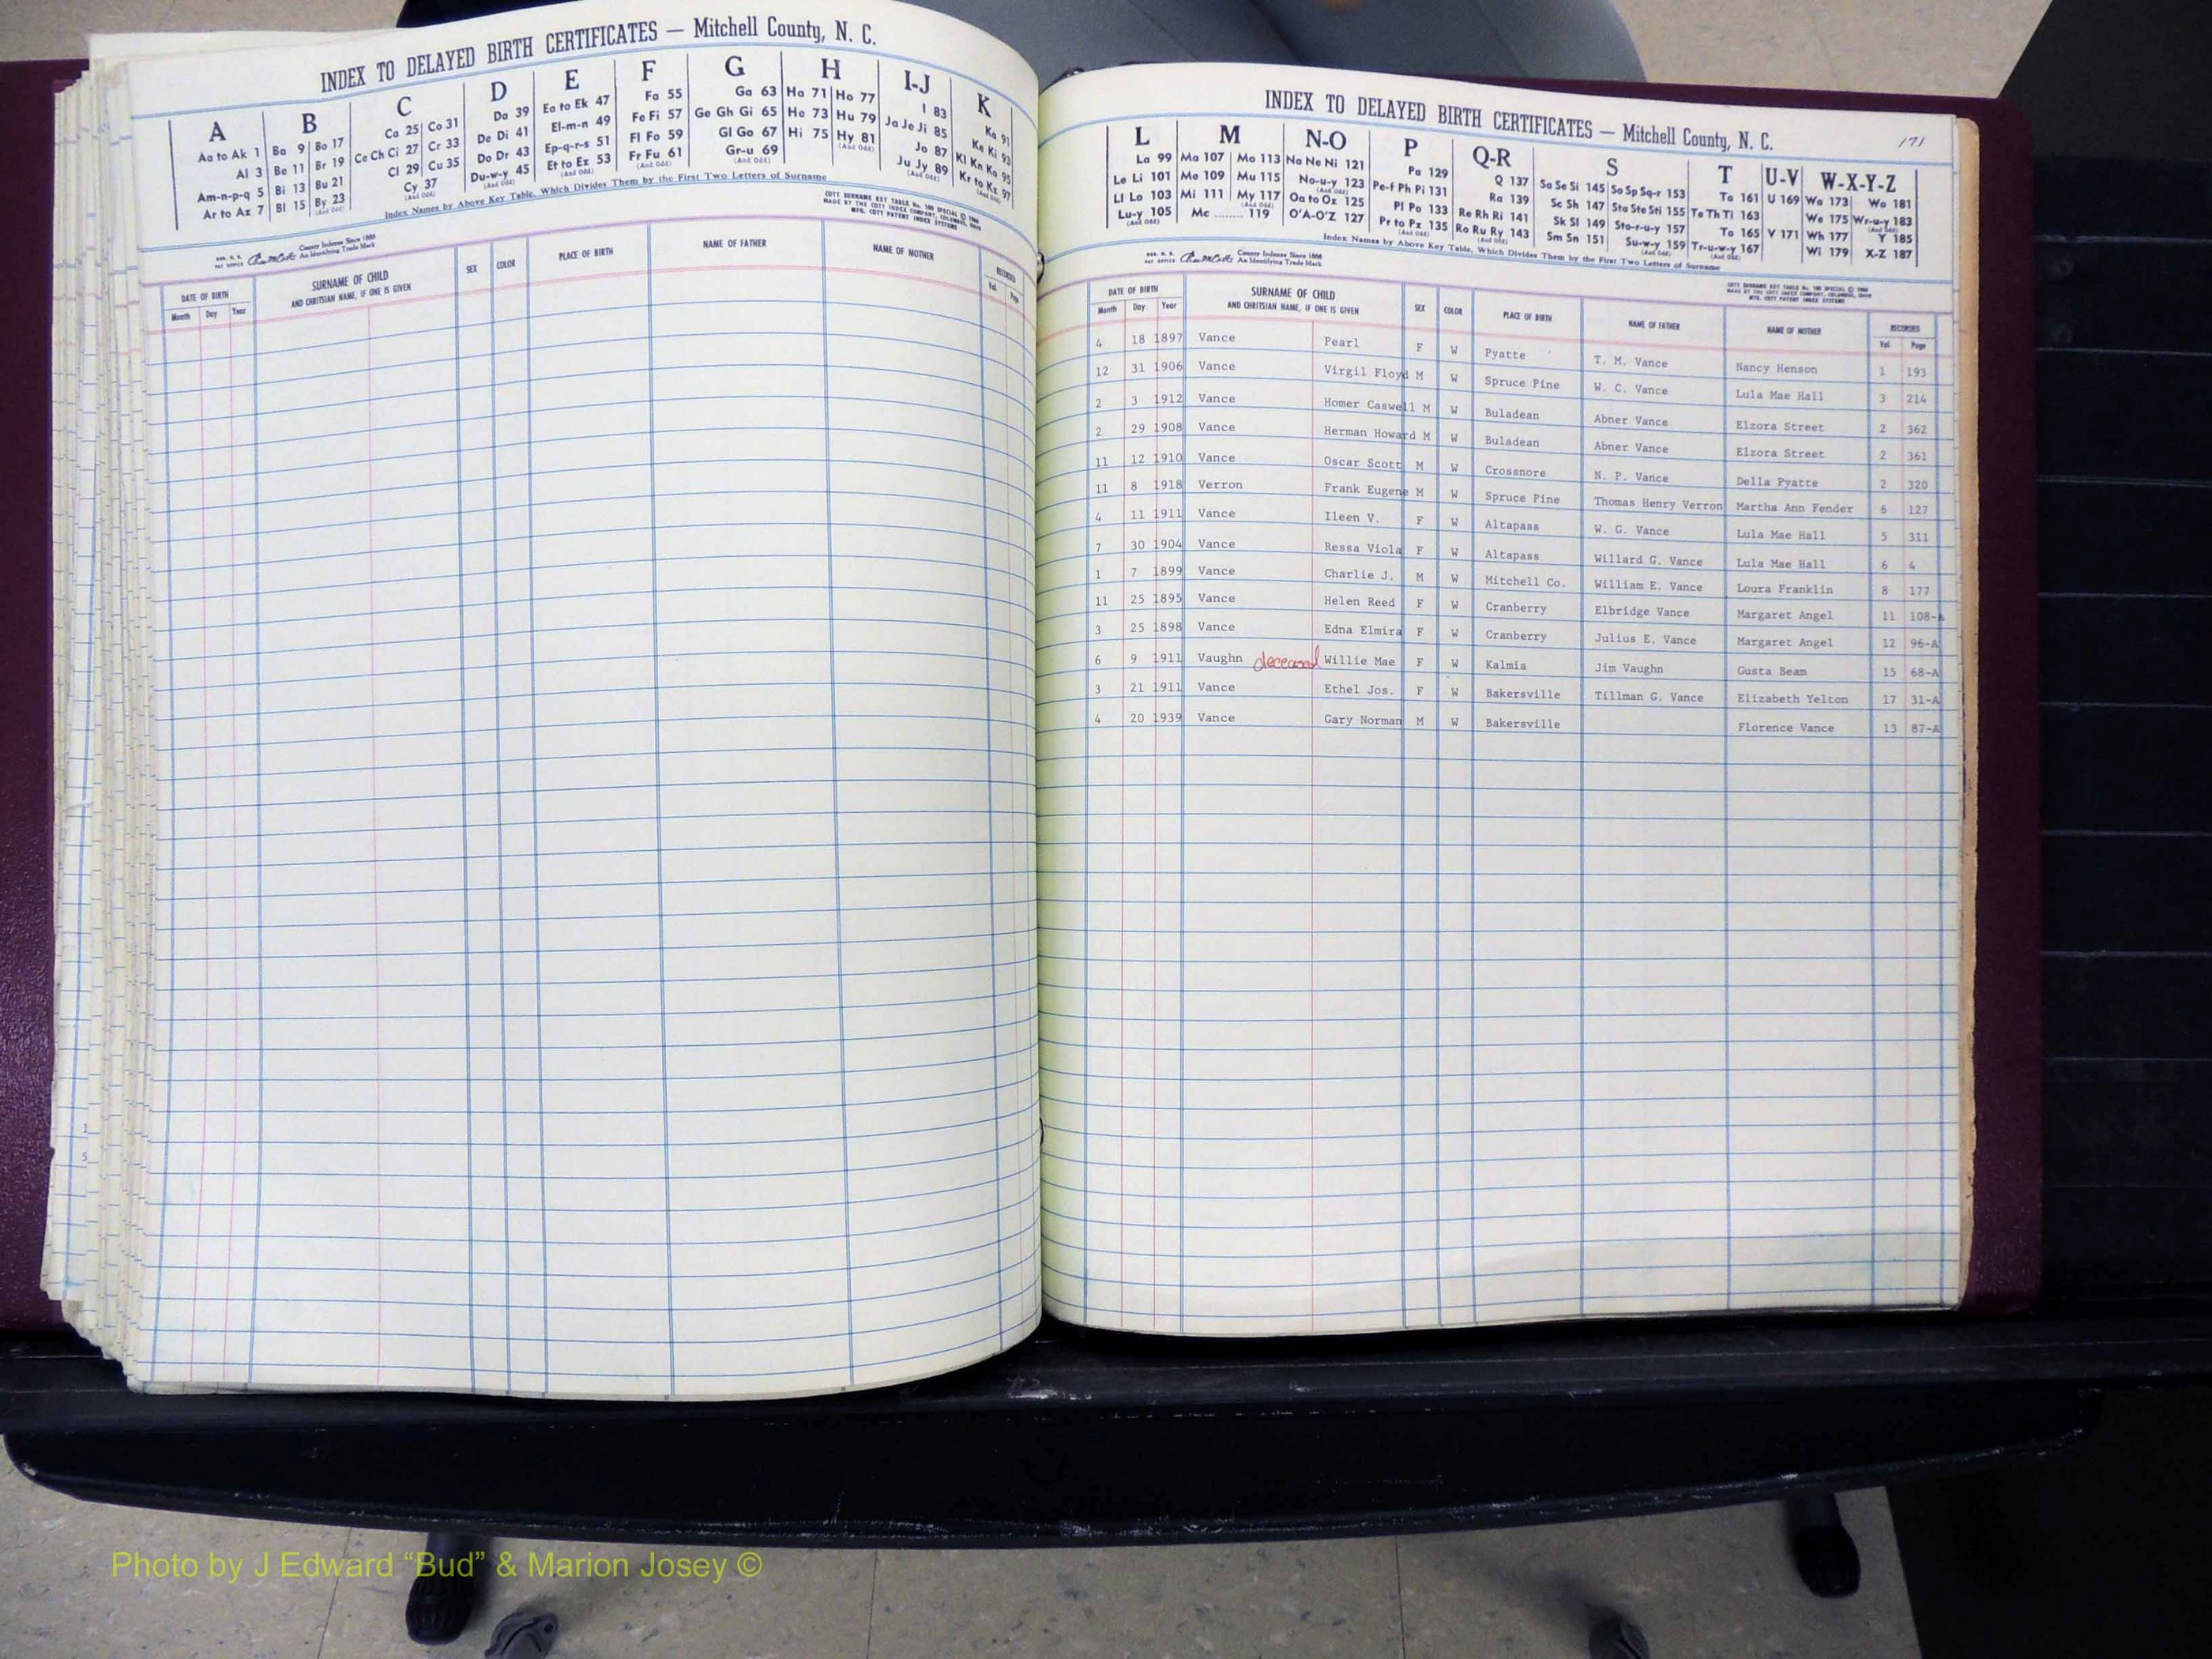 INDEX TO DELAYED BIRTH CERTIFICATES — Mitchell County, N. C.
A B C D E F G H I-J K
Aa to Ak 1 Ba 9 Bo 17 Ca 25 Co 31 Da 39 Ea to Ek 47 Fa 55 Ga 63 Ha 71 Ho 77 I 83 Ka 91
Al 3 Be 11 Br 19 Ce Ch Ci 27 Cr 33 De Di 41 El-m-n 49 Fe Fi 57 Ge Gh Gi 65 He 73 Hu 79 Ja Je Ji 85 Ke Ki 93
Am-n-p-q 5 Bi 13 Bu 21 Cl 29 Cu 35 Do Dr 43 Ep-q-r-s 51 Fl Fo 59 Gl Go 67 Hi 75 Hy 81 (And Odd) Jo 87 Kl Kn Ko 95
Ar to Az 7 Bl 15 By 23 (And Odd) Cy 37 (And Odd) Du-w-y 45 (And Odd) Et to Ez 53 (And Odd) Fr Fu 61 (And Odd) Gr-u 69 (And Odd) Ju Jy 89 (And Odd) Kr to Kz 97 (And Odd)
Index Names by Above Key Table, Which Divides Them by the First Two Letters of Surname
County Indexes Since 1888
An Identifying Trade Mark
COTT SURNAME KEY TABLE No. 100 SPECIAL © 1966
MADE BY THE COTT INDEX COMPANY, COLUMBUS, OHIO
MFG. COTT PATENT INDEX SYSTEMS
DATE OF BIRTH SURNAME OF CHILD SEX COLOR PLACE OF BIRTH NAME OF FATHER NAME OF MOTHER RECORDED
Month Day Year AND CHRITSIAN NAME, IF ONE IS GIVEN Vol. Page
1
5
INDEX TO DELAYED BIRTH CERTIFICATES — Mitchell County, N. C. 171
L M N-O P Q-R S T U-V W-X-Y-Z
La 99 Ma 107 Mo 113 Na Ne Ni 121 Pa 129 Q 137 Sa Se Si 145 So Sp Sq-r 153 Ta 161 U 169 Wa 173 Wo 181
Le Li 101 Me 109 Mu 115 No-u-y 123 (And Odd) Pe-f Ph Pi 131 Ra 139 Sc Sh 147 Sta Ste Sti 155 Te Th Ti 163 We 175 Wr-u-y 183 (And Odd)
Ll Lo 103 Mi 111 My 117 (And Odd) Oa to Oz 125 Pl Po 133 Re Rh Ri 141 Sk Sl 149 Sto-r-u-y 157 To 165 V 171 Wh 177 Y 185
Lu-y 105 (And Odd) Mc ........ 119 O'A-O'Z 127 Pr to Pz 135 (And Odd) Ro Ru Ry 143 (And Odd) Sm Sn 151 Su-w-y 159 (And Odd) Tr-u-w-y 167 (And Odd) Wi 179 X-Z 187
Index Names by Above Key Table, Which Divides Them by the First Two Letters of Surname
County Indexes Since 1888
An Identifying Trade Mark
COTT SURNAME KEY TABLE No. 100 SPECIAL © 1966
MADE BY THE COTT INDEX COMPANY, COLUMBUS, OHIO
MFG. COTT PATENT INDEX SYSTEMS
DATE OF BIRTH SURNAME OF CHILD SEX COLOR PLACE OF BIRTH NAME OF FATHER NAME OF MOTHER RECORDED
Month Day Year AND CHRITSIAN NAME, IF ONE IS GIVEN Vol. Page
4 18 1897 Vance Pearl F W Pyatte T. M. Vance Nancy Henson 1 193
12 31 1906 Vance Virgil Floyd M W Spruce Pine W. C. Vance Lula Mae Hall 3 214
2 3 1912 Vance Homer Caswell M W Buladean Abner Vance Elzora Street 2 362
2 29 1908 Vance Herman Howard M W Buladean Abner Vance Elzora Street 2 361
11 12 1910 Vance Oscar Scott M W Crossnore N. P. Vance Della Pyatte 2 320
11 8 1918 Verron Frank Eugene M W Spruce Pine Thomas Henry Verron Martha Ann Fender 6 127
4 11 1911 Vance Ileen V. F W Altapass W. G. Vance Lula Mae Hall 5 311
7 30 1904 Vance Ressa Viola F W Altapass Willard G. Vance Lula Mae Hall 6 4
1 7 1899 Vance Charlie J. M W Mitchell Co. William E. Vance Loura Franklin 8 177
11 25 1895 Vance Helen Reed F W Cranberry Elbridge Vance Margaret Angel 11 108-A
3 25 1898 Vance Edna Elmira F W Cranberry Julius E. Vance Margaret Angel 12 96-A
6 9 1911 Vaughn deceased Willie Mae F W Kalmia Jim Vaughn Gusta Beam 15 68-A
3 21 1911 Vance Ethel Jos. F W Bakersville Tillman G. Vance Elizabeth Yelton 17 31-A
4 20 1939 Vance Gary Norman M W Bakersville Florence Vance 13 87-A
Photo by J Edward “Bud” & Marion Josey ©